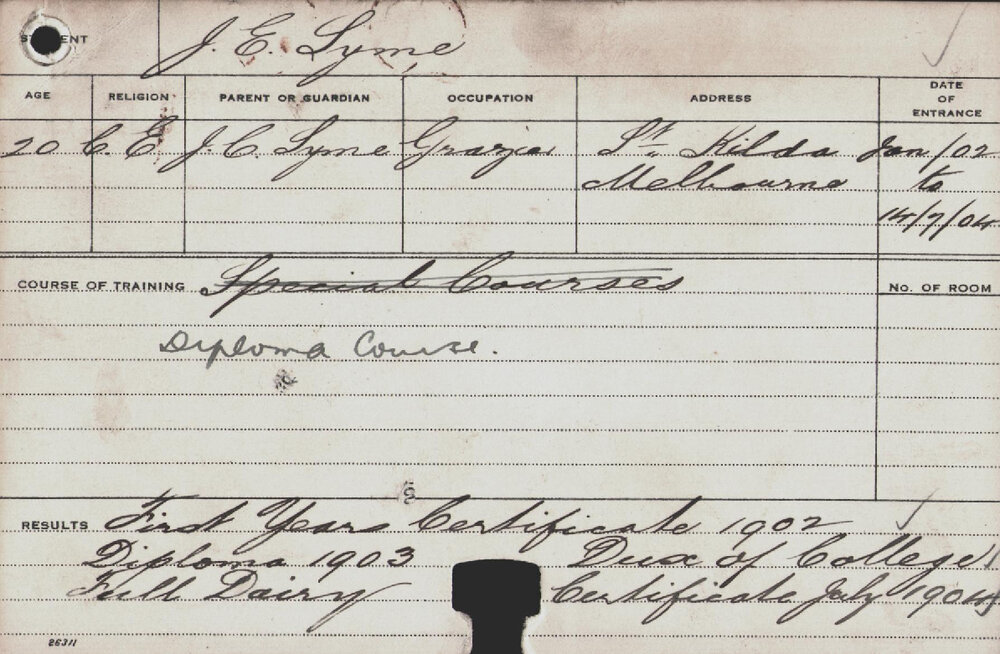 STUDENT J. E. Lyme
AGE RELIGION PARENT OR GUARDIAN OCCUPATION ADDRESS DATE OF ENTRANCE
20 C. E. J. C. Lyme Grazier St. Kilda Jan/02
Melbourne to
14/7/04
COURSE OF TRAINING Special Courses No. OF ROOM
Diploma Course.
RESULTS First Years Certificate 1902
Diploma 1903 Dux of College
Full Dairy Certificate July 1904
26311